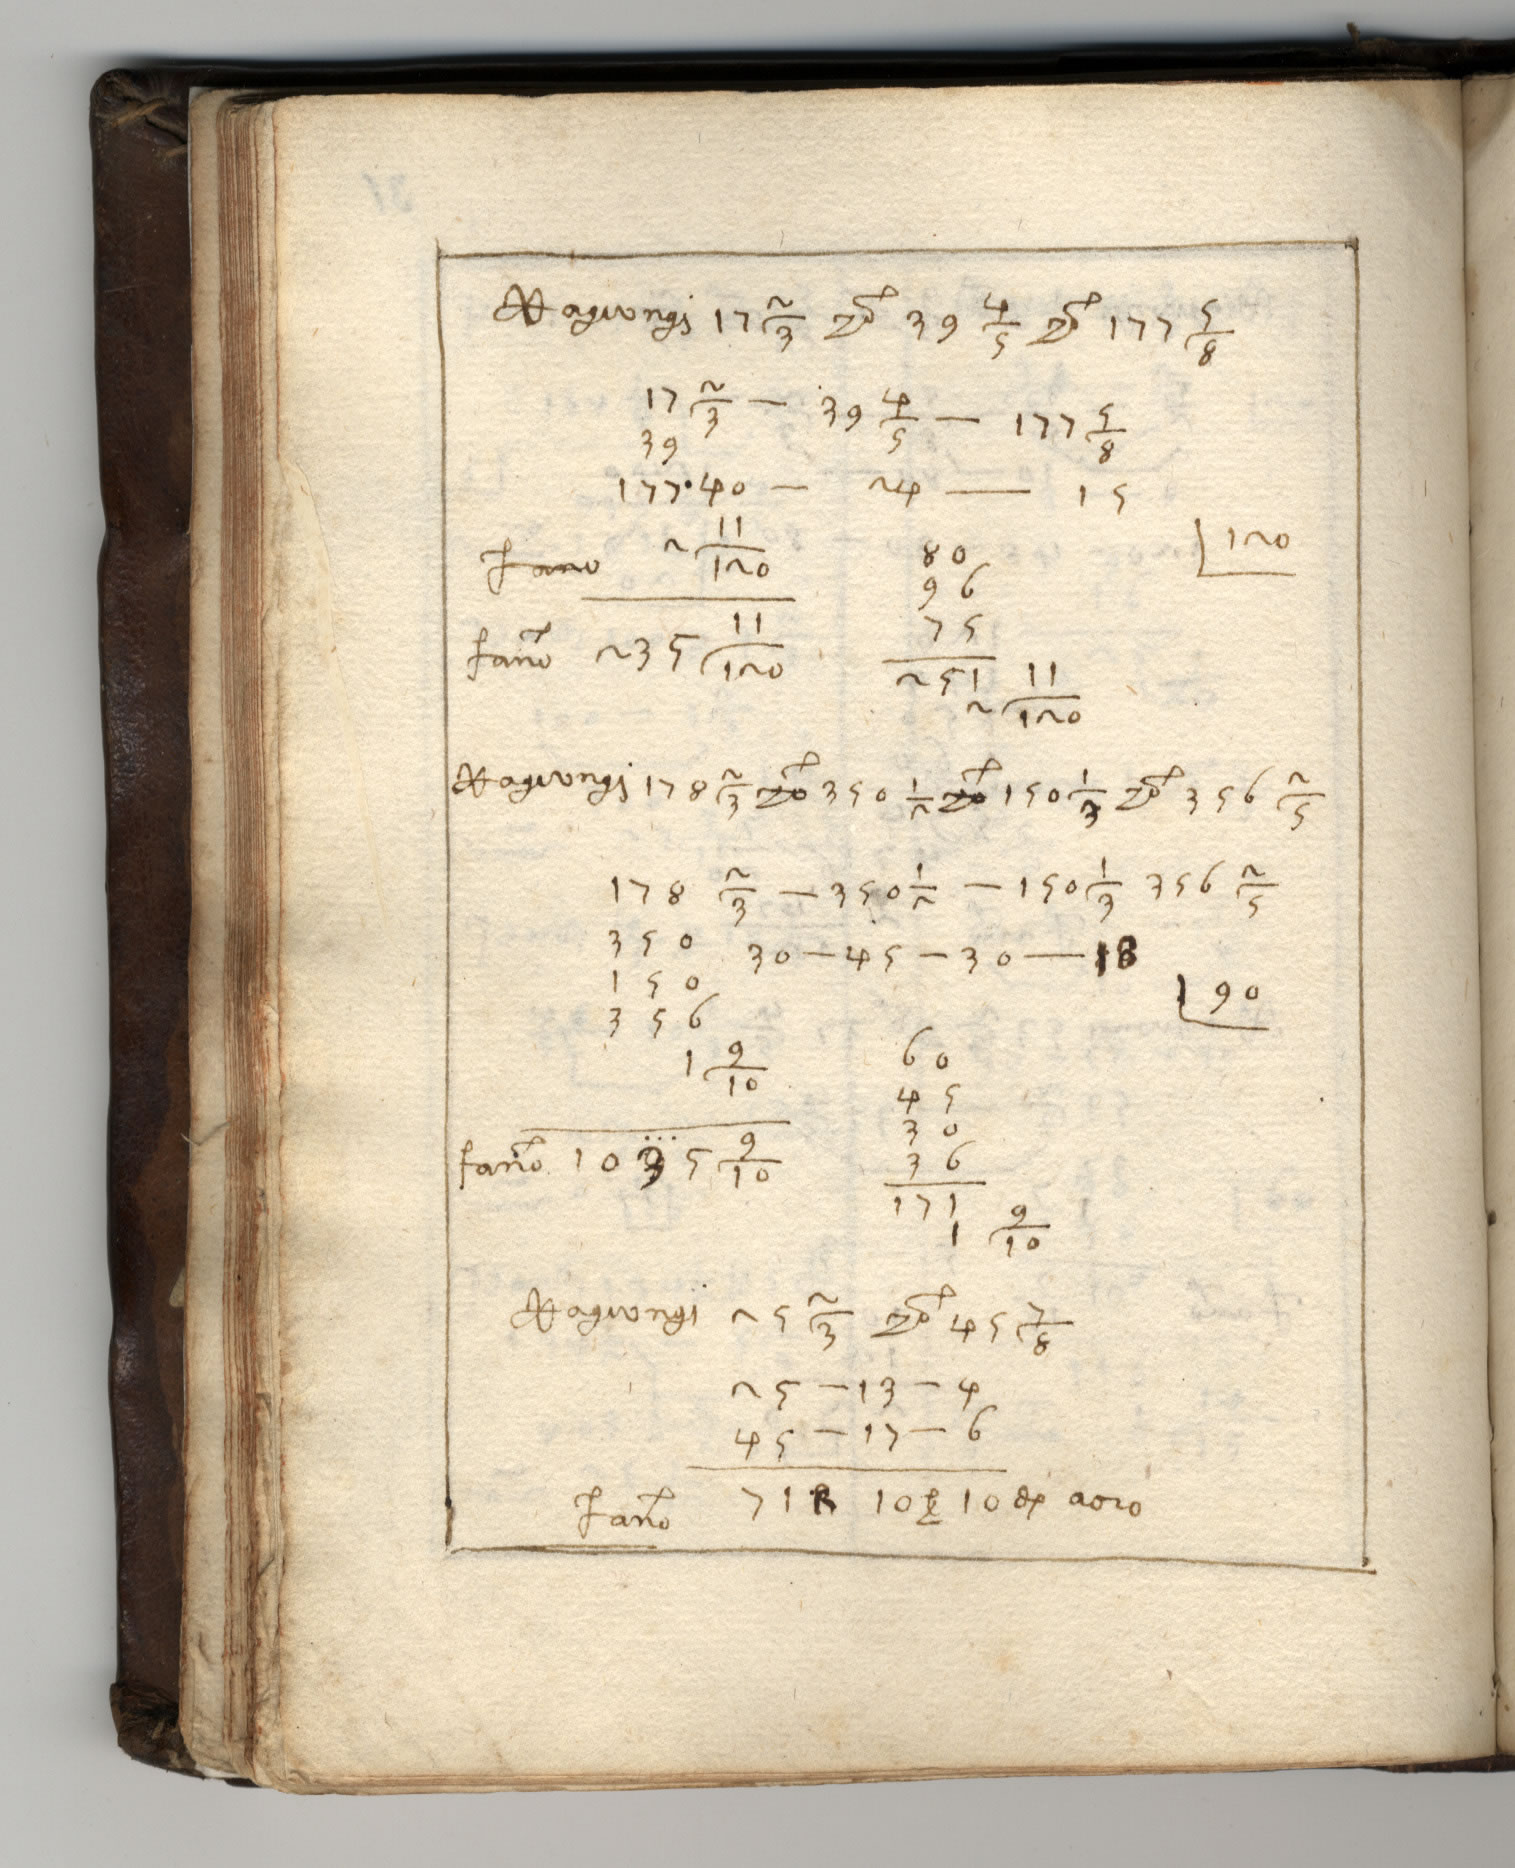 Ragiongi 17 2/3 con 39 4/5 con 177 5/8
17 2/3 — 39 4/5 — 177 5/8
39
177 · 40 — 24 — 15
120
fano 2 11/120
80
96
75
fano 235 11/120
251
2 11/120
Ragiongi 178 2/3 con 350 1/2 con 150 1/3 con 356 2/5
178 2/3 — 350 1/2 — 150 1/3 356 2/5
350 30 — 45 — 30 — 18
150
90
356
1 9/10
60
45
30
36
fano 1035 9/10
171
1 9/10
Ragiongi 25 2/3 con 45 7/8
25 — 13 — 4
45 — 17 — 6
fano 71 10 10